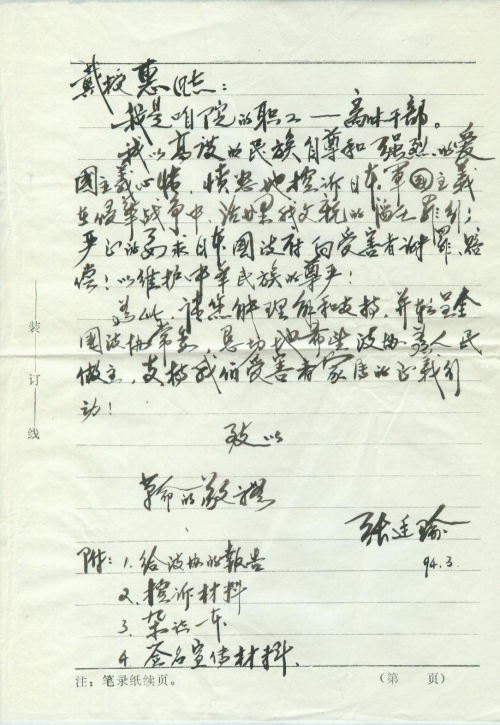 戴校惠同志：
我是咱院的职工——离休干部。
我以高度的民族自尊和强烈的爱
国主义心情，愤怒地控诉日本军国主义
在侵华战争中，法西斯的滔天罪行；
严正的要求日本国政府向受害者谢罪、赔
偿！以维护中华民族的尊严！
为此，请您能理解和支持，并转呈全
国政协常委，恳切地希望政协为人民
做主，支持我们受害者家属的正义行
动！
致以
革命的敬礼
张廷瑜
94.3.
附：1.给政协的报告
2.控诉材料
3.杂志一本
4.签名宣传材料.
装
订
线
注：笔录纸续页。
（第 页）